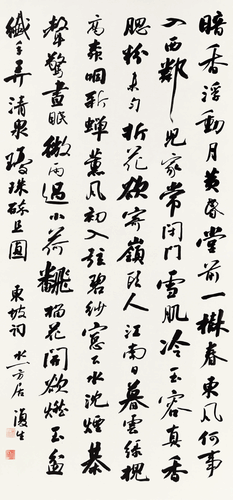 暗香浮動月黃昏堂前一樹春東風何事
入西鄰兒家常閉門雪肌冷玉容真香
腮粉未勻折花欲寄嶺頭人江南日暮雲綠槐
高柳咽新蟬薰風初入弦碧紗窗下水沈煙棊
聲驚晝眠微雨過小荷翻榴花開欲燃玉盆
纖手弄清泉瓊珠碎且圓 東坡詞